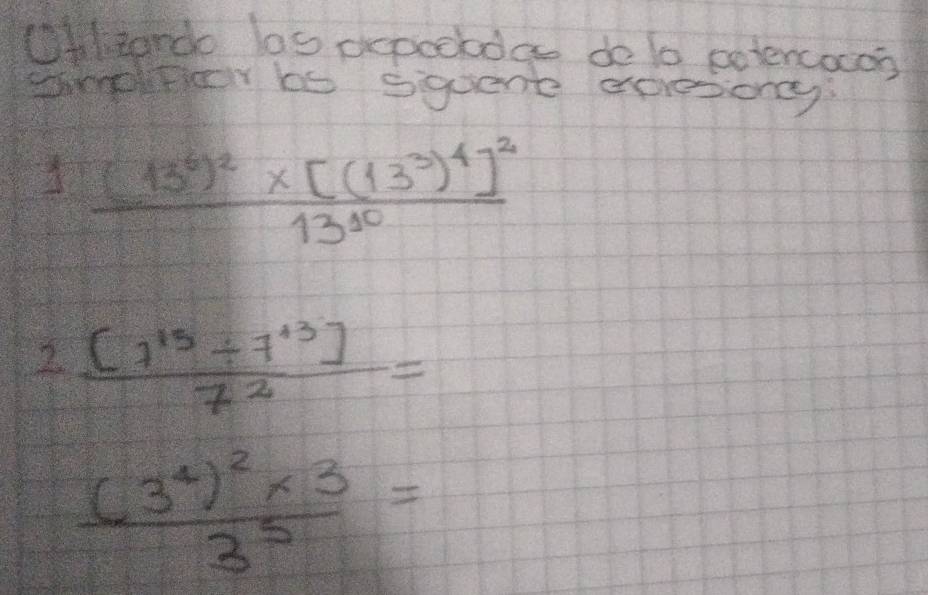 Utilizando las propiedades de la potencación
simplificar las siguiente expresiones:
1 (13⁶)² × [(13³)⁴]²
13¹⁰
2 [7¹⁵ ÷ 7¹³] =
7²
(3⁴)² × 3 =
3⁵